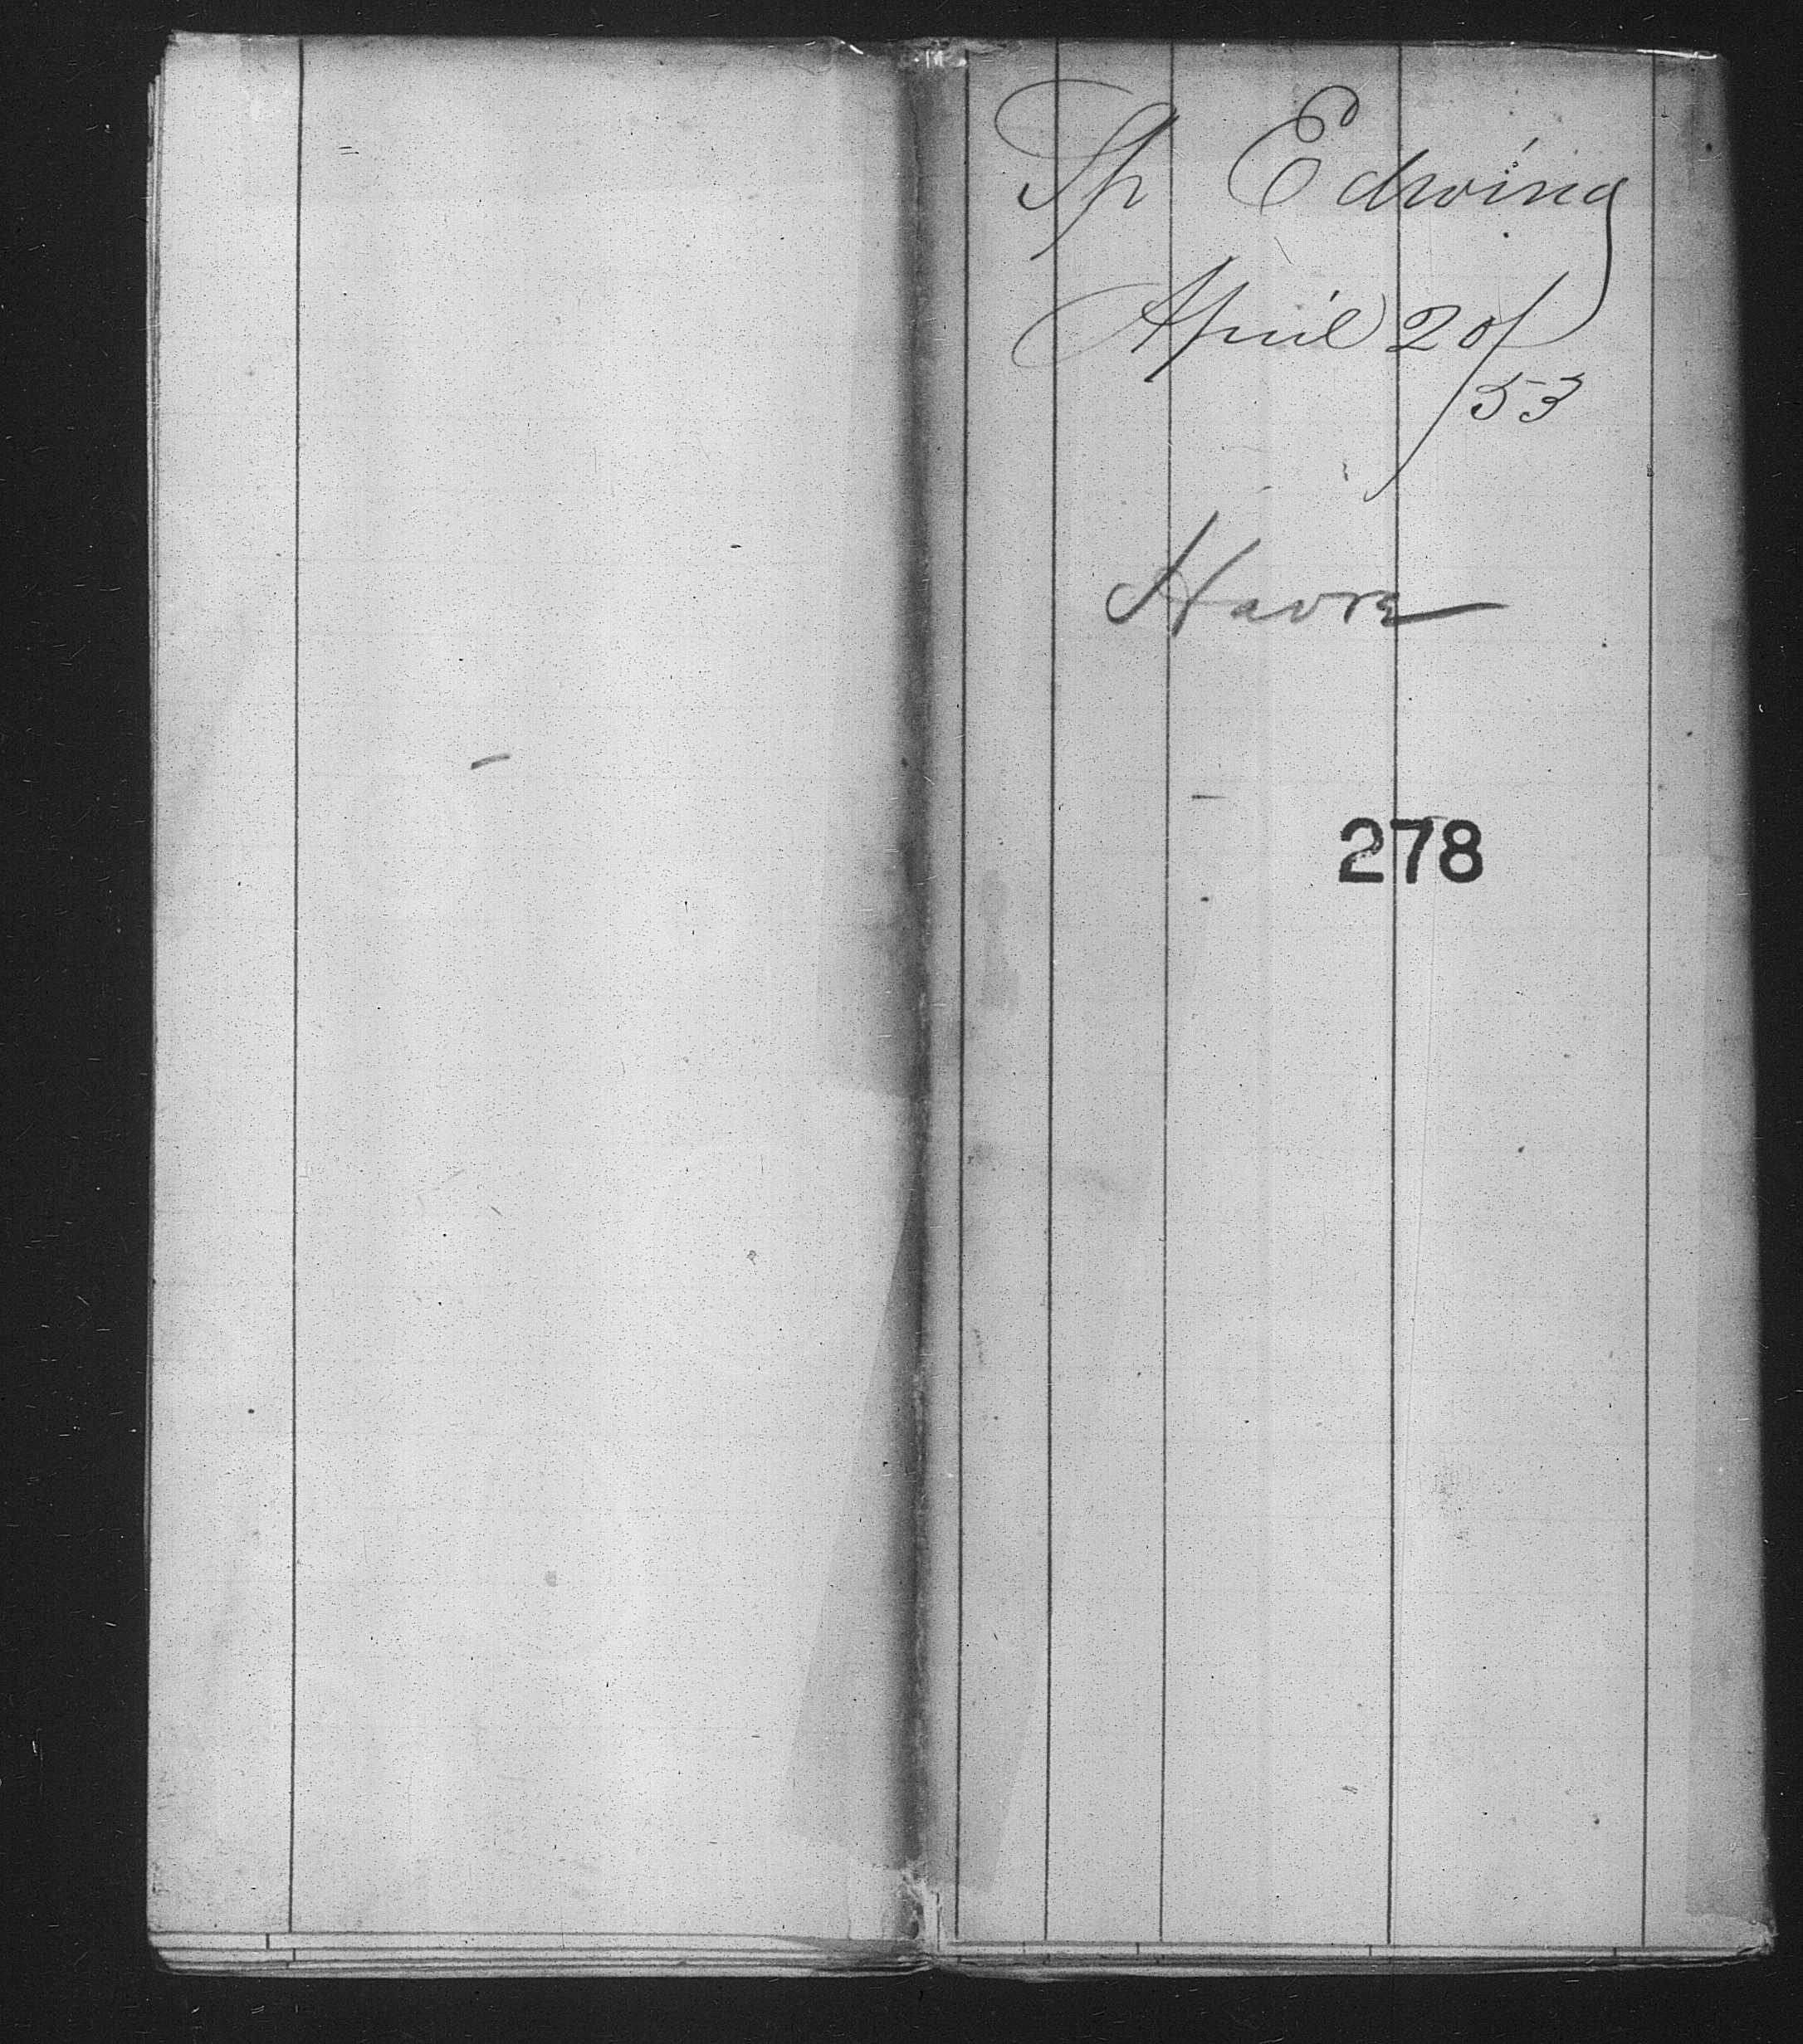 Sh Edwina
April 20/
53
Havre
278